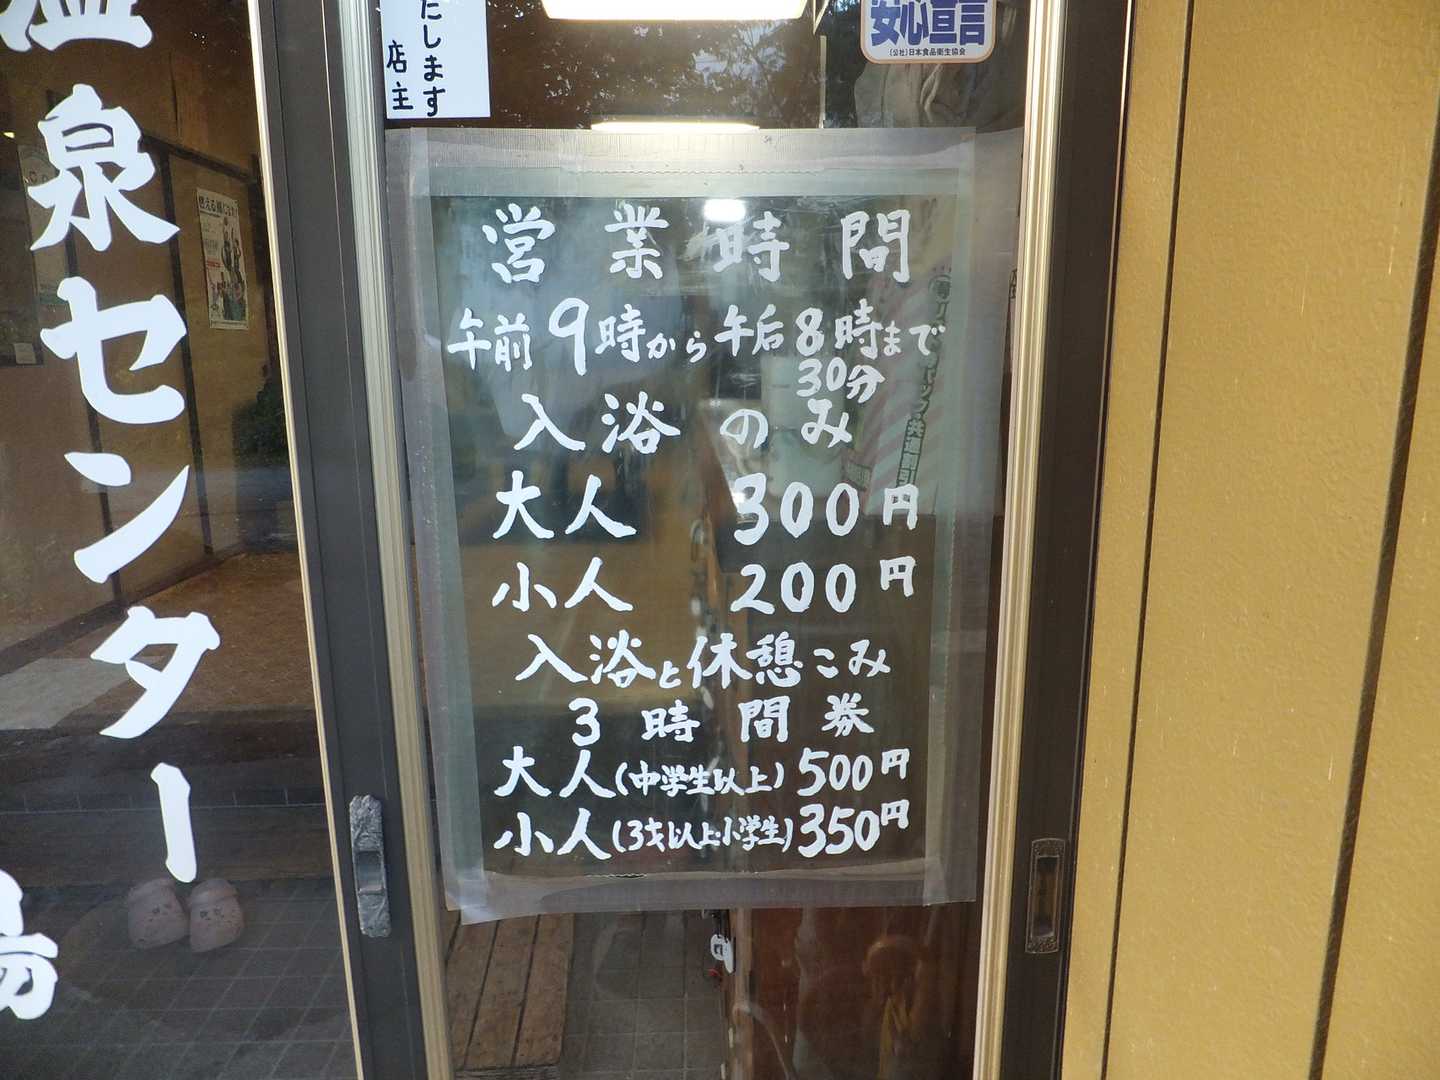 たします
店主
安心宣言
(公社)日本食品衛生協会
温泉センター
営業時間
午前9時から午后8時まで
30分
入浴のみ
大人 300円
小人 200円
入浴と休憩こみ
3時間券
大人(中学生以上)500円
小人(3才以上小学生)350円
湯